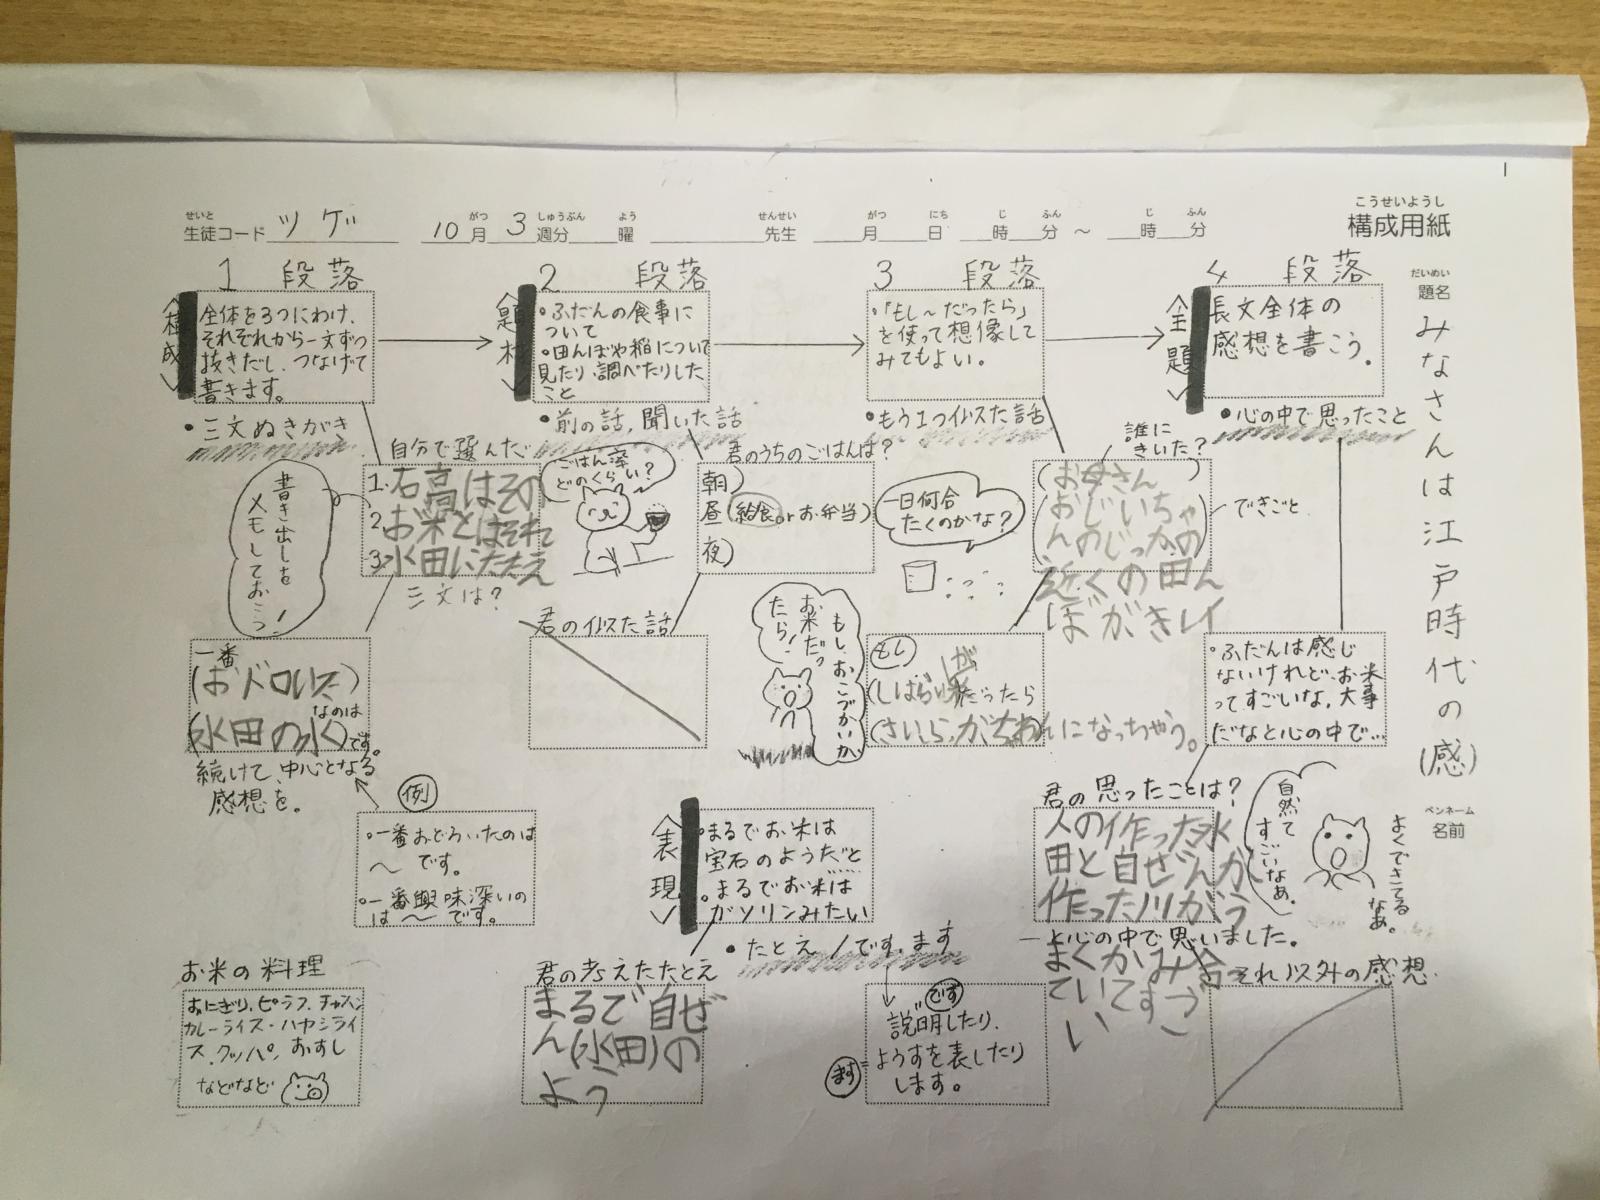 こうせいようし
構成用紙
せいと
生徒コード ツゲ
がつ しゅうぶん よう
10月3週分 曜
せんせい
先生
がつ にち じ ふん じ ふん
月 日 時 分 ～ 時 分
だいめい
題名
みなさんは江戸時代の(感)
ペンネーム
名前
1 段落
構成
全体を3つにわけ、
それぞれから一文ずつ
抜きだし、つなげて
書きます。
・三文ぬきがき
自分で選んだ
1.石高はその
2お米とはそれ
3水田にたたえ
三文は?
書き出しを
メモしておこう!
一番
(おドロいた)
なのは
(水田の水)です。
続けて、中心となる
感想を。
例
・一番おどろいたのは
～です。
・一番興味深いの
は～です。
お米の料理
おにぎり、ピラフ、チャーハン
カレーライス・ハヤシライ
ス、クッパ、おすし
などなど
2 段落
題材
・ふだんの食事に
ついて
・田んぼや稲について
見たり、調べたりした
こと
・前の話,聞いた話
ごはん茶
どのくらい?
君のうちのごはんは?
朝)
昼(給食orお弁当)
夜)
君の似た話
表現
・まるでお米は
宝石のようだと
・まるでお米は
ガソリンみたい
・たとえ/です、ます
君の考えたたとえ
まるで自ぜ
ん(水田)の
よう
です
説明したり、
ます
ようすを表したり
します。
3 段落
・「もし～だったら」
を使って想像して
みてもよい。
・もう1つ似た話
一日何合
たくのかな?
誰に
きいた?
(お母さん)
(おじいちゃ
んのじっかの
近くの田ん
ぼがキレイ
できごと
もし、おこづかいが、
お米だっ
たら!
もし
だったら
になっちゃう。
4 段落
全題
長文全体の
感想を書こう。
・心の中で思ったこと
・ふだんは感じ
ないけれど、お米
ってすごいな,大事
だなと心の中で…
君の思ったことは?
人の作った水
田と自ぜんが
作った川がう
まくかみ合
ていてすご
い
ーと心の中で思いました。
自然て
すごいなあ。
よくできてる
なあ。
それ以外の感想